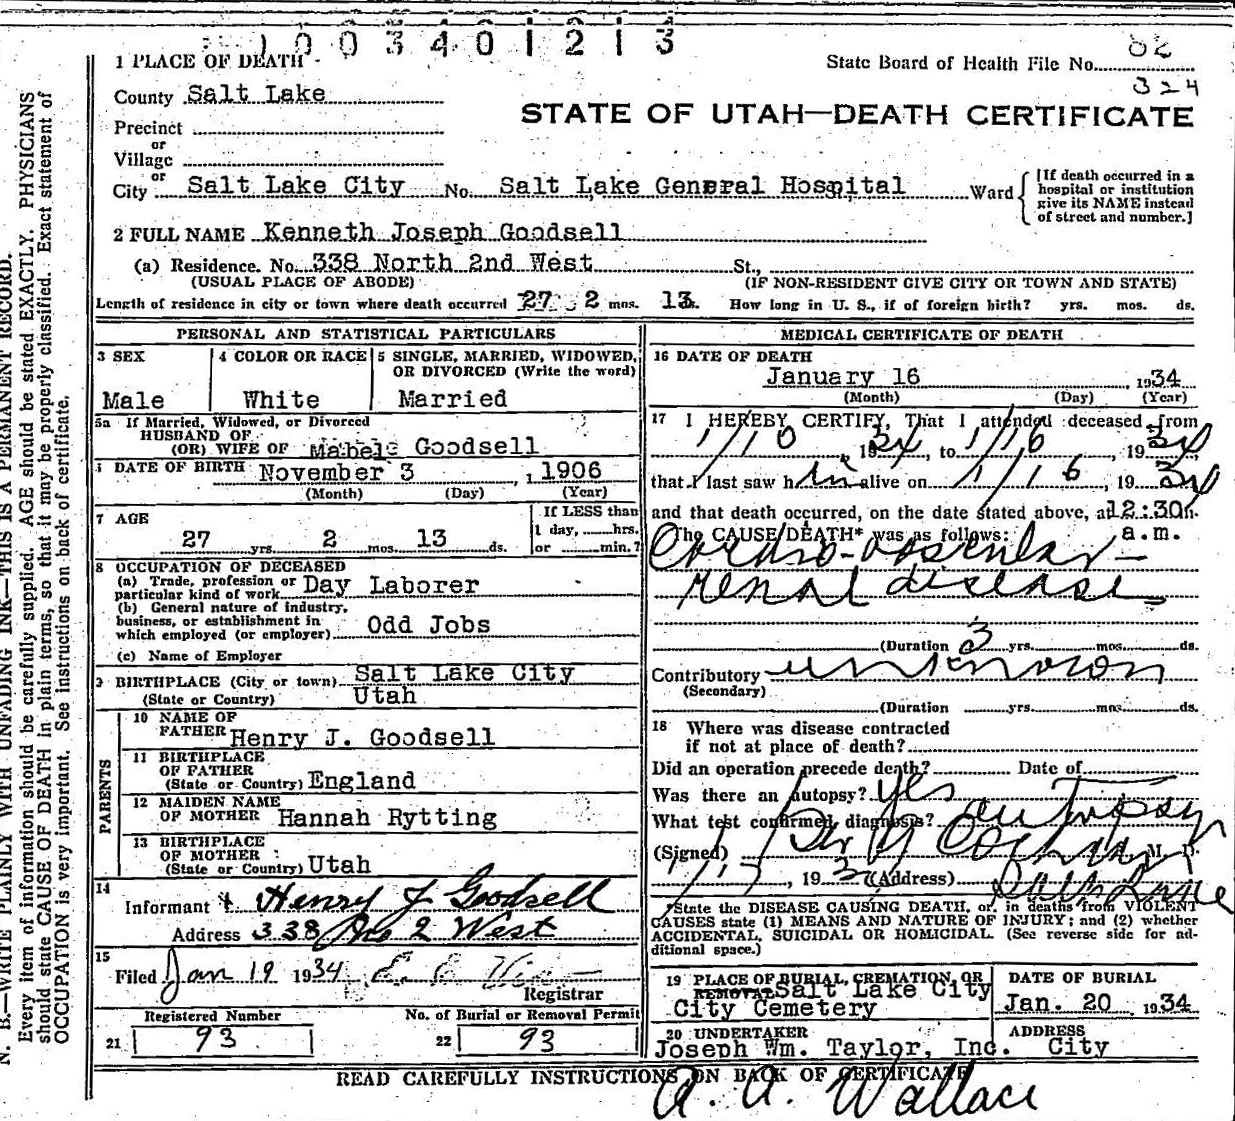 1003401213
1 PLACE OF DEATH
State Board of Health File No. 82
324
County Salt Lake
STATE OF UTAH—DEATH CERTIFICATE
Precinct
or
Village
or
City Salt Lake City No. Salt Lake General Hospital Ward
[If death occurred in a
hospital or institution
give its NAME instead
of street and number.]
2 FULL NAME Kenneth Joseph Goodsell
(a) Residence. No. 338 North 2nd West St.,
(USUAL PLACE OF ABODE) (IF NON-RESIDENT GIVE CITY OR TOWN AND STATE)
Length of residence in city or town where death occurred 27 2 mos. 13 How long in U. S., if of foreign birth? yrs. mos. ds.
PERSONAL AND STATISTICAL PARTICULARS
3 SEX
Male
4 COLOR OR RACE
White
5 SINGLE, MARRIED, WIDOWED,
OR DIVORCED (Write the word)
Married
5a If Married, Widowed, or Divorced
HUSBAND OF
(OR) WIFE OF Mabele Goodsell
DATE OF BIRTH November 3, 1906
(Month) (Day) (Year)
7 AGE
27 yrs. 2 mos. 13 ds.
If LESS than
1 day, hrs.
or min.?
8 OCCUPATION OF DECEASED
(a) Trade, profession or
particular kind of work Day Laborer
(b) General nature of industry,
business, or establishment in
which employed (or employer) Odd Jobs
(c) Name of Employer
9 BIRTHPLACE (City or town) Salt Lake City
(State or Country) Utah
PARENTS
10 NAME OF
FATHER Henry J. Goodsell
11 BIRTHPLACE
OF FATHER
(State or Country) England
12 MAIDEN NAME
OF MOTHER Hannah Rytting
13 BIRTHPLACE
OF MOTHER
(State or Country) Utah
14
Informant Henry J Goodsell
Address 338 No 2 West
15
Filed Jan 19 1934
Registrar
Registered Number
21 93
No. of Burial or Removal Permit
22 93
MEDICAL CERTIFICATE OF DEATH
16 DATE OF DEATH
January 16, 1934
(Month) (Day) (Year)
17 I HEREBY CERTIFY, That I attended deceased from
1/10, 1934, to 1/16, 1934
that I last saw him alive on 1/16, 1934
and that death occurred, on the date stated above, at 12:30 m.
a.m.
The CAUSE/DEATH* was as follows:
Cardio-vascular-
renal disease
(Duration 3 yrs. mos. ds.
Contributory unknown
(Secondary)
(Duration yrs. mos. ds.
18 Where was disease contracted
if not at place of death?
Did an operation precede death? Date of
Was there an autopsy? Yes
What test confirmed diagnosis? autopsy
(Signed) M. D.
, 193 (Address) Salt Lake
*State the DISEASE CAUSING DEATH, or, in deaths from VIOLENT
CAUSES state (1) MEANS AND NATURE OF INJURY; and (2) whether
ACCIDENTAL, SUICIDAL OR HOMICIDAL. (See reverse side for ad-
ditional space.)
19 PLACE OF BURIAL, CREMATION, OR
REMOVAL Salt Lake City
City Cemetery
DATE OF BURIAL
Jan. 20, 1934
20 UNDERTAKER
Joseph Wm. Taylor, Inc.
ADDRESS
City
READ CAREFULLY INSTRUCTIONS ON BACK OF CERTIFICATE
A. A. Wallace
N. B.—WRITE PLAINLY WITH UNFADING INK—THIS IS A PERMANENT RECORD.
Every item of information should be carefully supplied. AGE should be stated EXACTLY. PHYSICIANS
should state CAUSE OF DEATH in plain terms, so that it may be properly classified. Exact statement of
OCCUPATION is very important. See instructions on back of certificate.